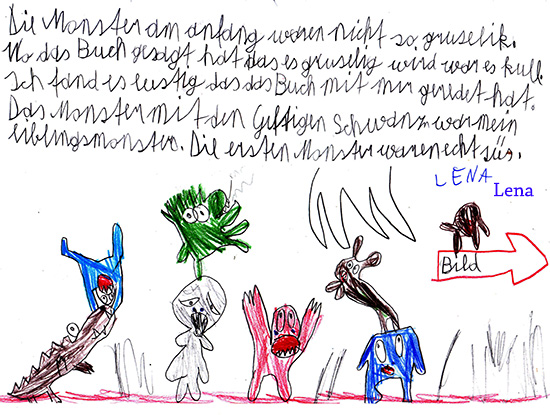 Die Monster am anfang waren nicht so gruselik.
Wo das Buch gesagt hat das es gruselig wird war es kull.
Ich fand es lustig das das Buch mit mir geredet hat.
Das Monster mit den Geftigen Schwanz war mein
liblingsmonster. Die ersten Monster waren echt süs.
LENA
Lena
Bild